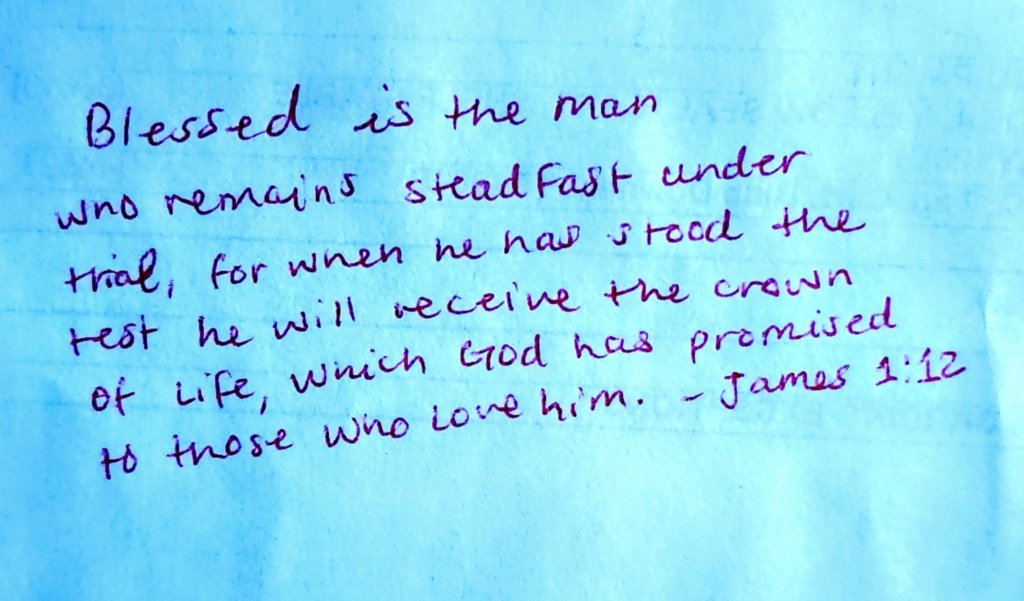 Blessed is the man
who remains steadfast under
trial, for when he has stood the
test he will receive the crown
of life, which God has promised
to those who love him. - James 1:12